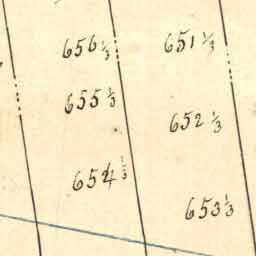 656 1/3
651 1/3
655 1/3
652 1/3
654 1/3
653 1/3